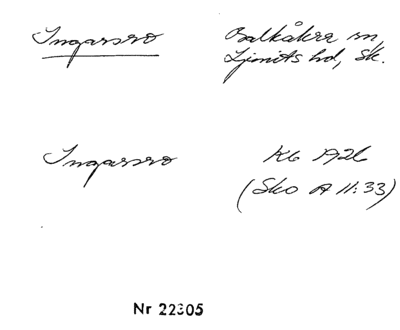 Ingarsro Balkåkra sn,
Ljunits hd, Sk.
Ingarsro Kb 1926
(Sko A 11:33)
Nr 22305